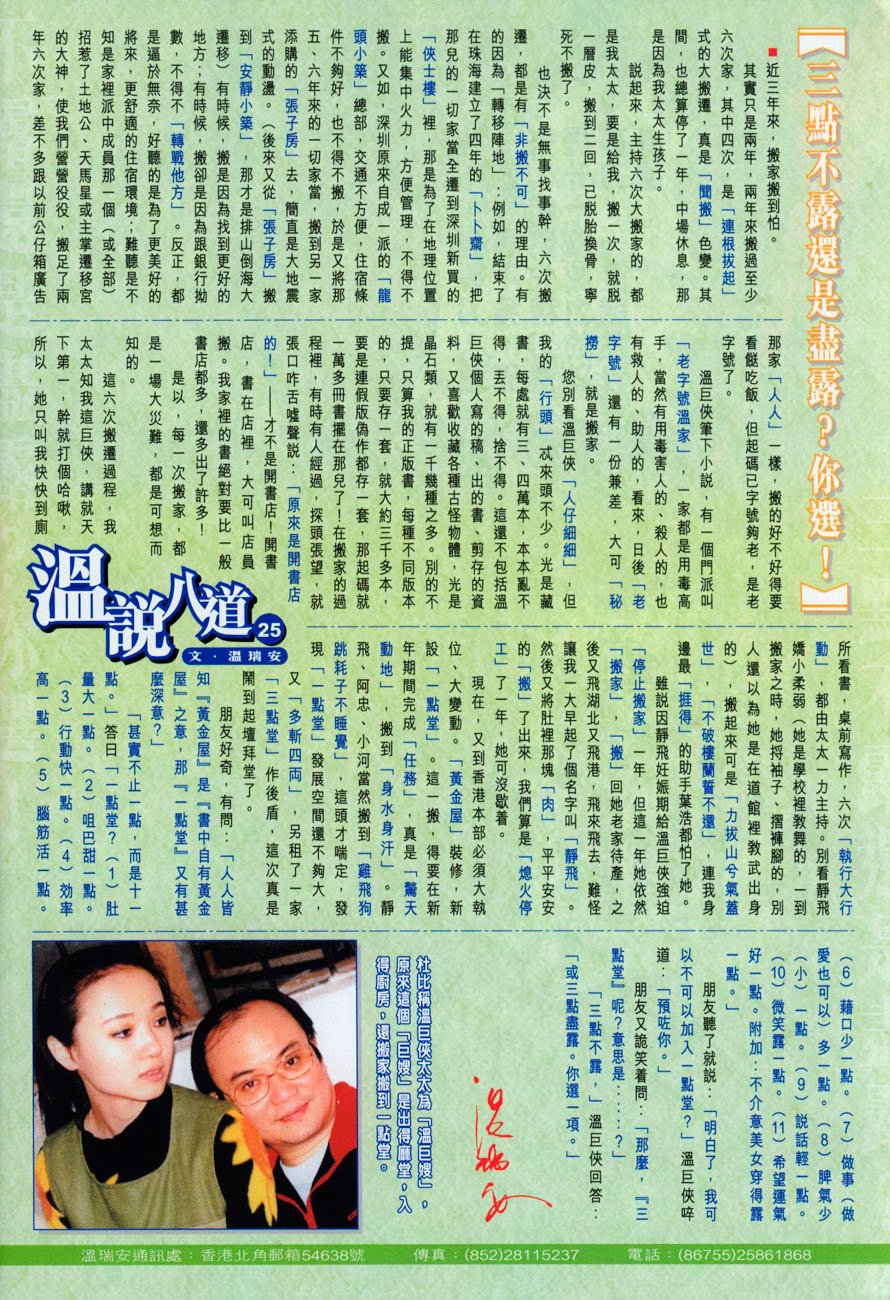 【三點不露還是盡露?你選!】
■近三年來,搬家搬到怕。
其實只是兩年,兩年來搬過至少
六次家,其中四次,是「連根拔起」
式的大搬遷,真是「聞搬」色變。其
間,也總算停了一年,中場休息,那
是因為我太太生孩子。
說起來,主持六次大搬家的,都
是我太太,要是給我,搬一次,就脱
一層皮,搬到二回,已脱胎換骨,寧
死不搬了。
也決不是無事找事幹,六次搬
遷,都是有「非搬不可」的理由。有
的因為「轉移陣地」:例如,結束了
在珠海建立了四年的「卜卜齋」,把
那兒的一切家當全遷到深圳新買的
「俠士樓」裡,那是為了在地理位置
上能集中火力,方便管理,不得不
搬。又如,深圳原來自成一派的「龍
頭小築」總部,交通不方便,住宿條
件不夠好,也不得不搬,於是又將那
五、六年來的一切家當,搬到另一家
添購的「張子房」去,簡直是大地震
式的動盪。(後來又從「張子房」搬
到「安靜小築」,那才是排山倒海大
遷移)有時候,搬是因為找到更好的
地方;有時候,搬卻是因為跟銀行拗
數,不得不「轉戰他方」。反正,都
是逼於無奈,好聽的是為了更美好的
將來,更舒適的住宿環境;難聽是不
知是家裡派中成員那一個(或全部)
招惹了土地公、天馬星或主掌遷移宮
的大神,使我們營營役役,搬足了兩
年六次家,差不多跟以前公仔箱廣告
那家「人人」一樣,搬的好不好得要
看餸吃飯,但起碼已字號夠老,是老
字號了。
溫巨俠筆下小說,有一個門派叫
「老字號溫家」,一家都是用毒高
手,當然有用毒害人的、殺人的,也
有救人的、助人的,看來,日後「老
字號」還有一份兼差,大可「秘
撈」,就是搬家。
您別看溫巨俠「人仔細細」,但
我的「行頭」忒來頭不少。光是藏
書,每處就有三、四萬本,本本亂不
得,丟不得,捨不得。這還不包括溫
巨俠個人寫的稿、出的書、剪存的資
料,又喜歡收藏各種古怪物體,光是
晶石類,就有一千幾種之多。別的不
提,只算我的正版書,每種不同版本
的,只要存一套,就大約三千多本,
要是連假版偽作都存一套,那起碼就
一萬多冊書擺在那兒了!在搬家的過
程裡,有時有人經過,探頭張望,就
張口咋舌噓聲說:「原來是開書店
的!」——才不是開書店!開書
店,書在店裡,大可叫店員
搬。我家裡的書絕對要比一般
書店都多,還多出了許多!
是以,每一次搬家,都
是一場大災難,都是可想而
知的。
這六次搬遷過程,我
太太知我這巨俠,講就天
下第一,幹就打個哈啾,
所以,她只叫我快快到廁
所看書,桌前寫作,六次「執行大行
動」,都由太太一力主持。別看靜飛
嬌小柔弱(她是學校裡教舞的,一到
搬家之時,她捋袖子、摺褲腳的,別
人還以為她是在道館裡教武出身
的),搬起來可是「力拔山兮氣蓋
世」,「不破樓蘭誓不還」,連我身
邊最「捱得」的助手葉浩都怕了她。
雖説因靜飛妊娠期給溫巨俠強迫
「停止搬家」一年,但這一年她依然
「搬家」,「搬」回她老家待產,之
後又飛湖北又飛港,飛來飛去,難怪
讓我一大早起了個名字叫「靜飛」。
然後又將肚裡那塊「肉」,平平安安
的「搬」了出來,我們算是「熄火停
工」了一年,她可沒歇着。
現在,又到香港本部必須大執
位、大變動。「黃金屋」裝修,新
設「一點堂」。這一搬,得要在新
年期間完成「任務」,真是「驚天
動地」,搬到「身水身汗」。靜
飛、阿忠、小河當然搬到「雞飛狗
跳耗子不睡覺」,這頭才喘定,發
現「一點堂」發展空間還不夠大,
又「多斬四両」,另租了一家
「三點堂」作後盾,這次真是
鬧到起壇拜堂了。
朋友好奇,有問:「人人皆
知『黃金屋』是『書中自有黃金
屋』之意,那『一點堂』又有甚
麼深意?」
「甚實不止一點,而是十一
點。」答曰「一點堂?(1)肚
量大一點。(2)咀巴甜一點。
(3)行動快一點。(4)效率
高一點。(5)腦筋活一點。
(6)藉口少一點。(7)做事(做
愛也可以)多一點。(8)脾氣少
(小)一點。(9)説話輕一點。
(10)微笑露一點。(11)希望運氣
好一點。附加:不介意美女穿得露
一點。」
朋友聽了就説:「明白了,我可
以不可以加入一點堂?」溫巨俠啐
道:「預咗你。」
朋友又詭笑着問:「那麼,『三
點堂』呢?意思是::::?」
「三點不露,」溫巨俠回答:
「或三點盡露。你選一項。」
溫瑞安
溫說八道 25
文·溫瑞安
杜比稱溫巨俠太太為「溫巨嫂」,
原來這個「巨嫂」是出得廳堂,入
得廚房,還搬家搬到一點堂。
溫瑞安通訊處:香港北角郵箱54638號 傳真:(852)28115237 電話:(86755)25861868